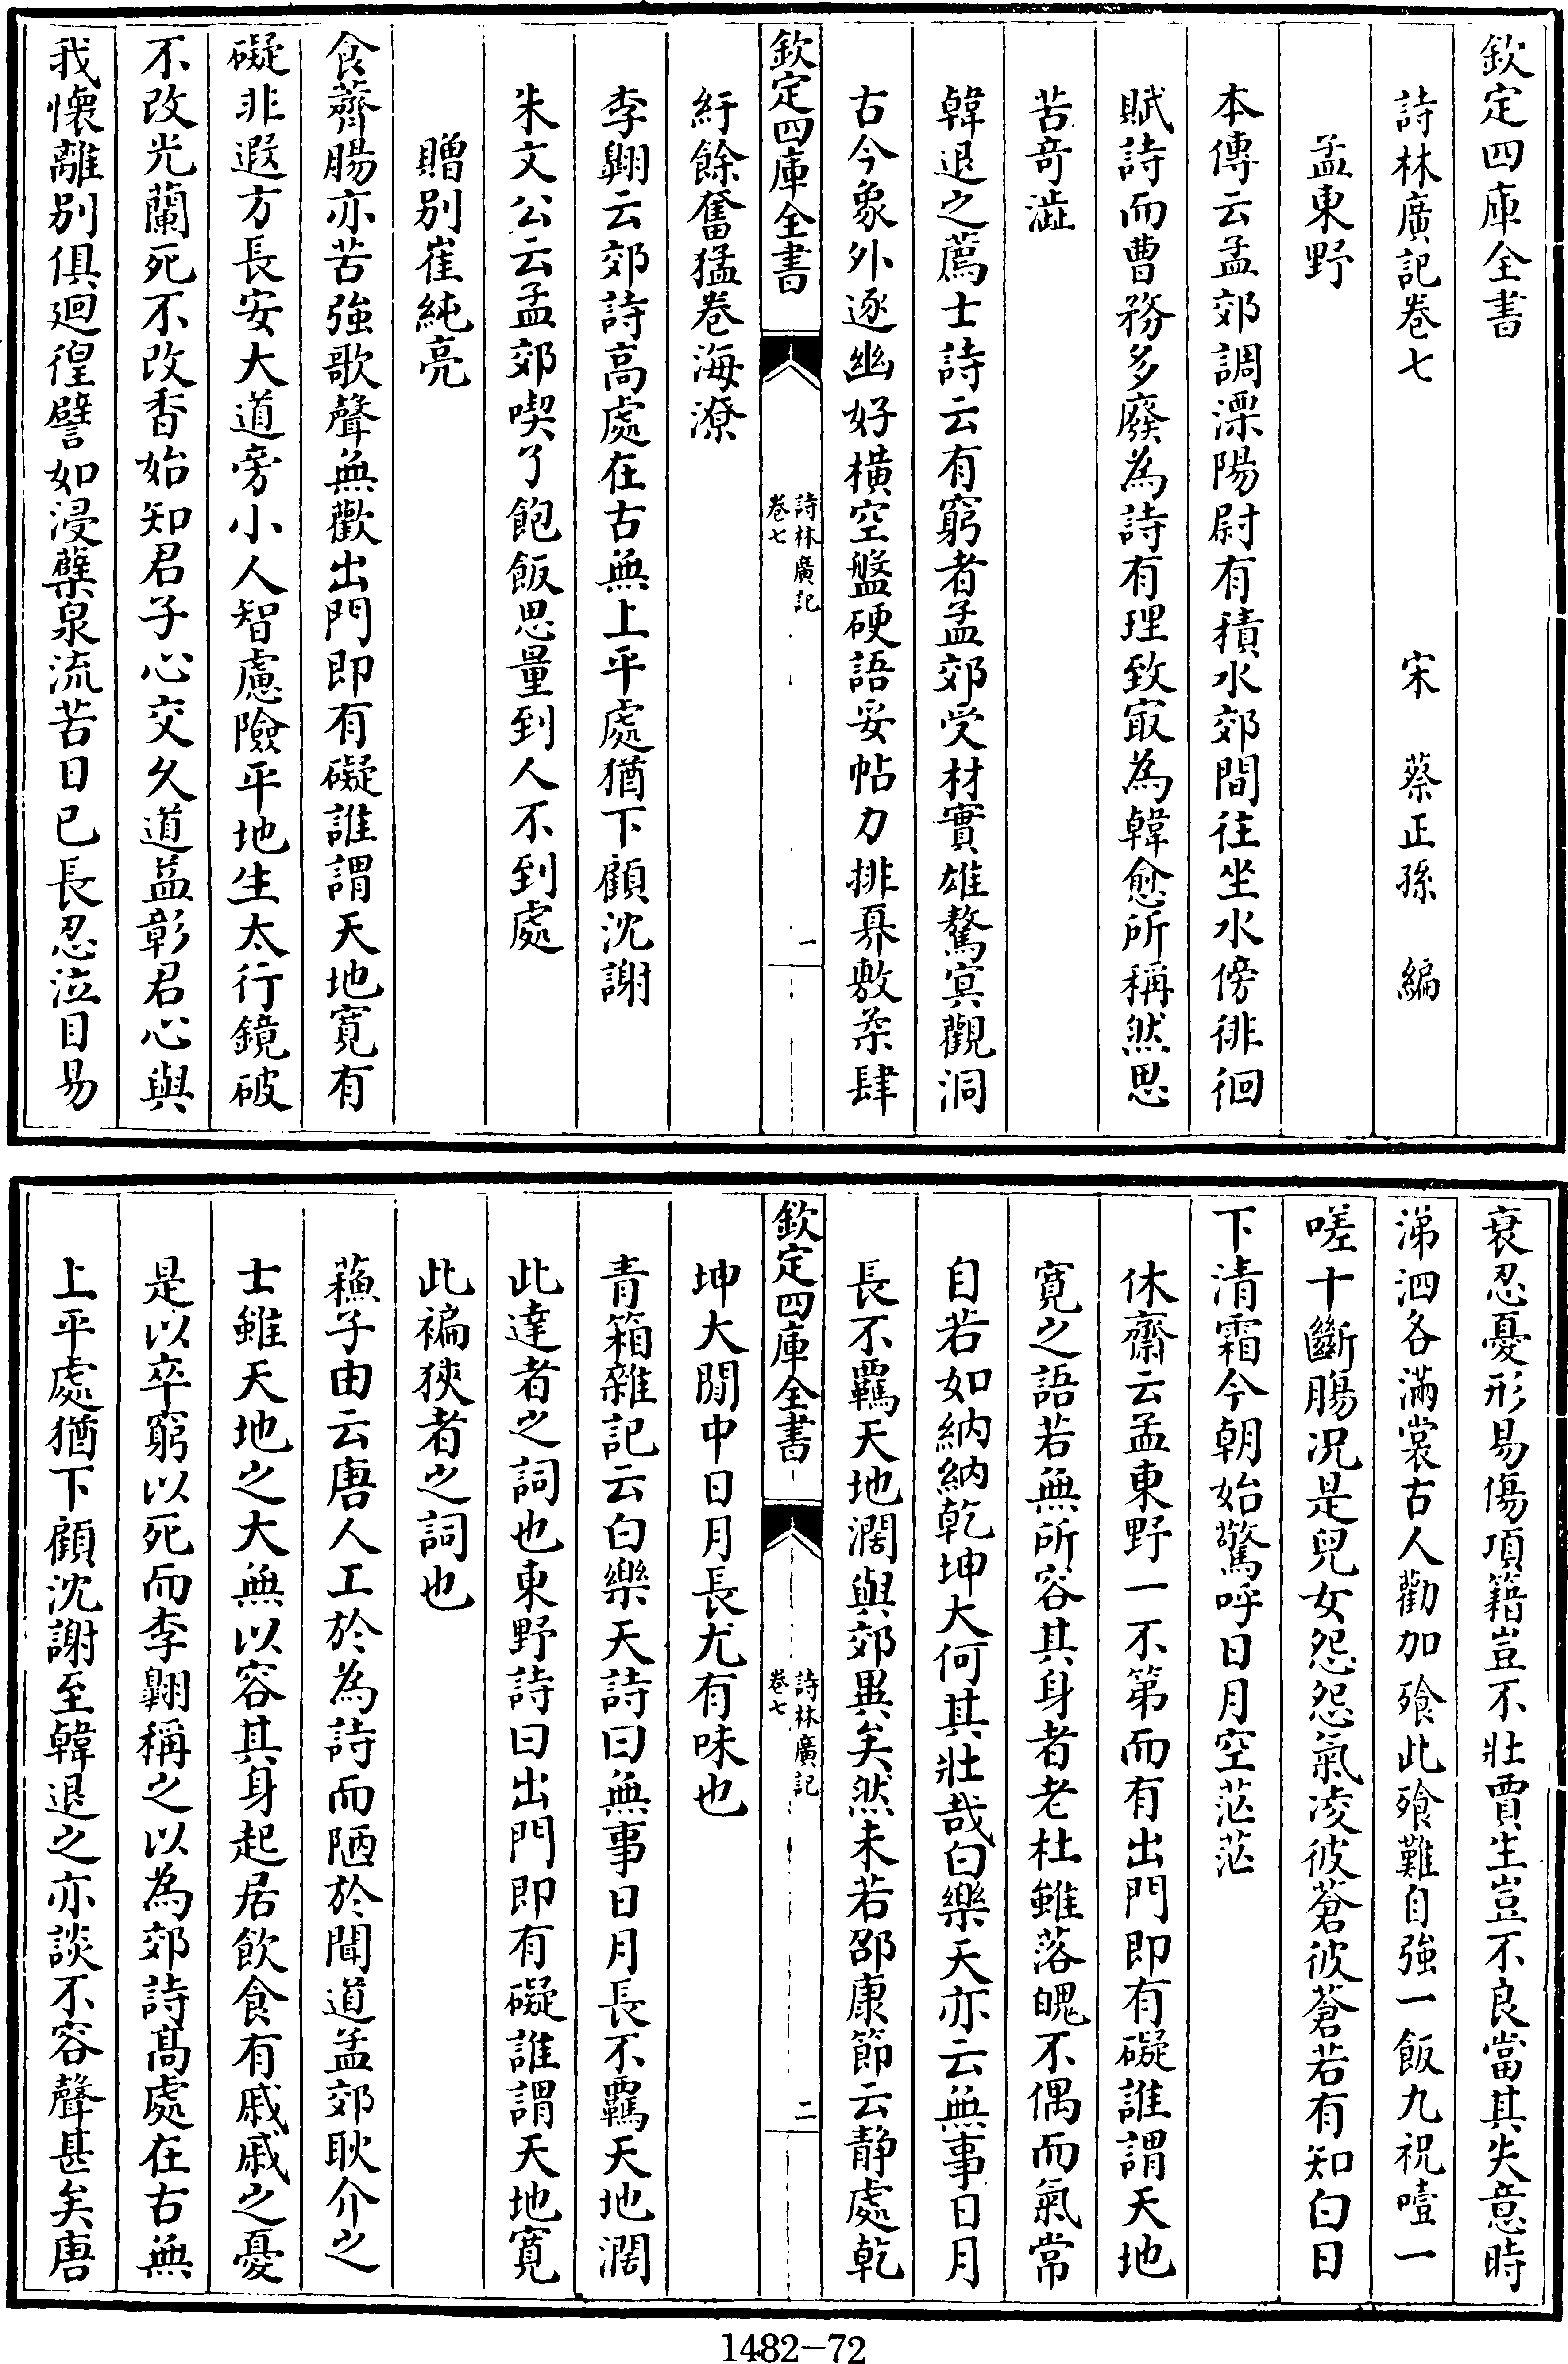 欽定四庫全書
詩林廣記卷七
宋 蔡正孫 編
孟東野
本傳云孟郊調溧陽尉有積水郊間往坐水傍徘徊
賦詩而曹務多廢為詩有理致㝡為韓愈所稱然思
苦奇澁
韓退之薦士詩云有窮者孟郊受材實雄驁冥觀洞
古今象外逐幽好橫空盤硬語妥帖力排奡敷柔肆
紆餘奮猛卷海潦
欽定四庫全書
詩林廣記
卷七
一
李翺云郊詩高處在古無上平處猶下顧沈謝
朱文公云孟郊喫了飽飯思量到人不到處
贈别崔純亮
食薺腸亦苦強歌聲無歡出門即有礙誰謂天地寬有
礙非遐方長安大道旁小人智慮險平地生太行鏡破
不改光蘭死不改香始知君子心交久道益彰君心與
我懷離别俱廻徨譬如浸蘖泉流苦日已長忍泣目易
衰忍憂形易傷項籍豈不壯賈生豈不良當其失意時
涕泗各滿裳古人勸加飱此飱難自強一飯九祝噎一
嗟十斷腸况是兒女怨怨氣凌彼蒼彼蒼若有知白日
下清霜今朝始驚呼日月空茫茫
休齋云孟東野一不第而有出門即有礙誰謂天地
寬之語若無所容其身者老杜雖落魄不偶而氣常
自若如納納乾坤大何其壯哉白樂天亦云無事日月
長不羈天地濶與郊異矣然未若邵康節云静處乾
坤大閒中日月長尤有味也
欽定四庫全書
詩林廣記
卷七
二
青箱雜記云白樂天詩曰無事日月長不羈天地濶
此達者之詞也東野詩曰出門即有礙誰謂天地寬
此褊狹者之詞也
蘓子由云唐人工於為詩而陋於聞道孟郊耿介之
士雖天地之大無以容其身起居飲食有戚戚之憂
是以卒窮以死而李翺稱之以為郊詩髙處在古無
上平處猶下顧沈謝至韓退之亦談不容聲甚矣唐
1482-72